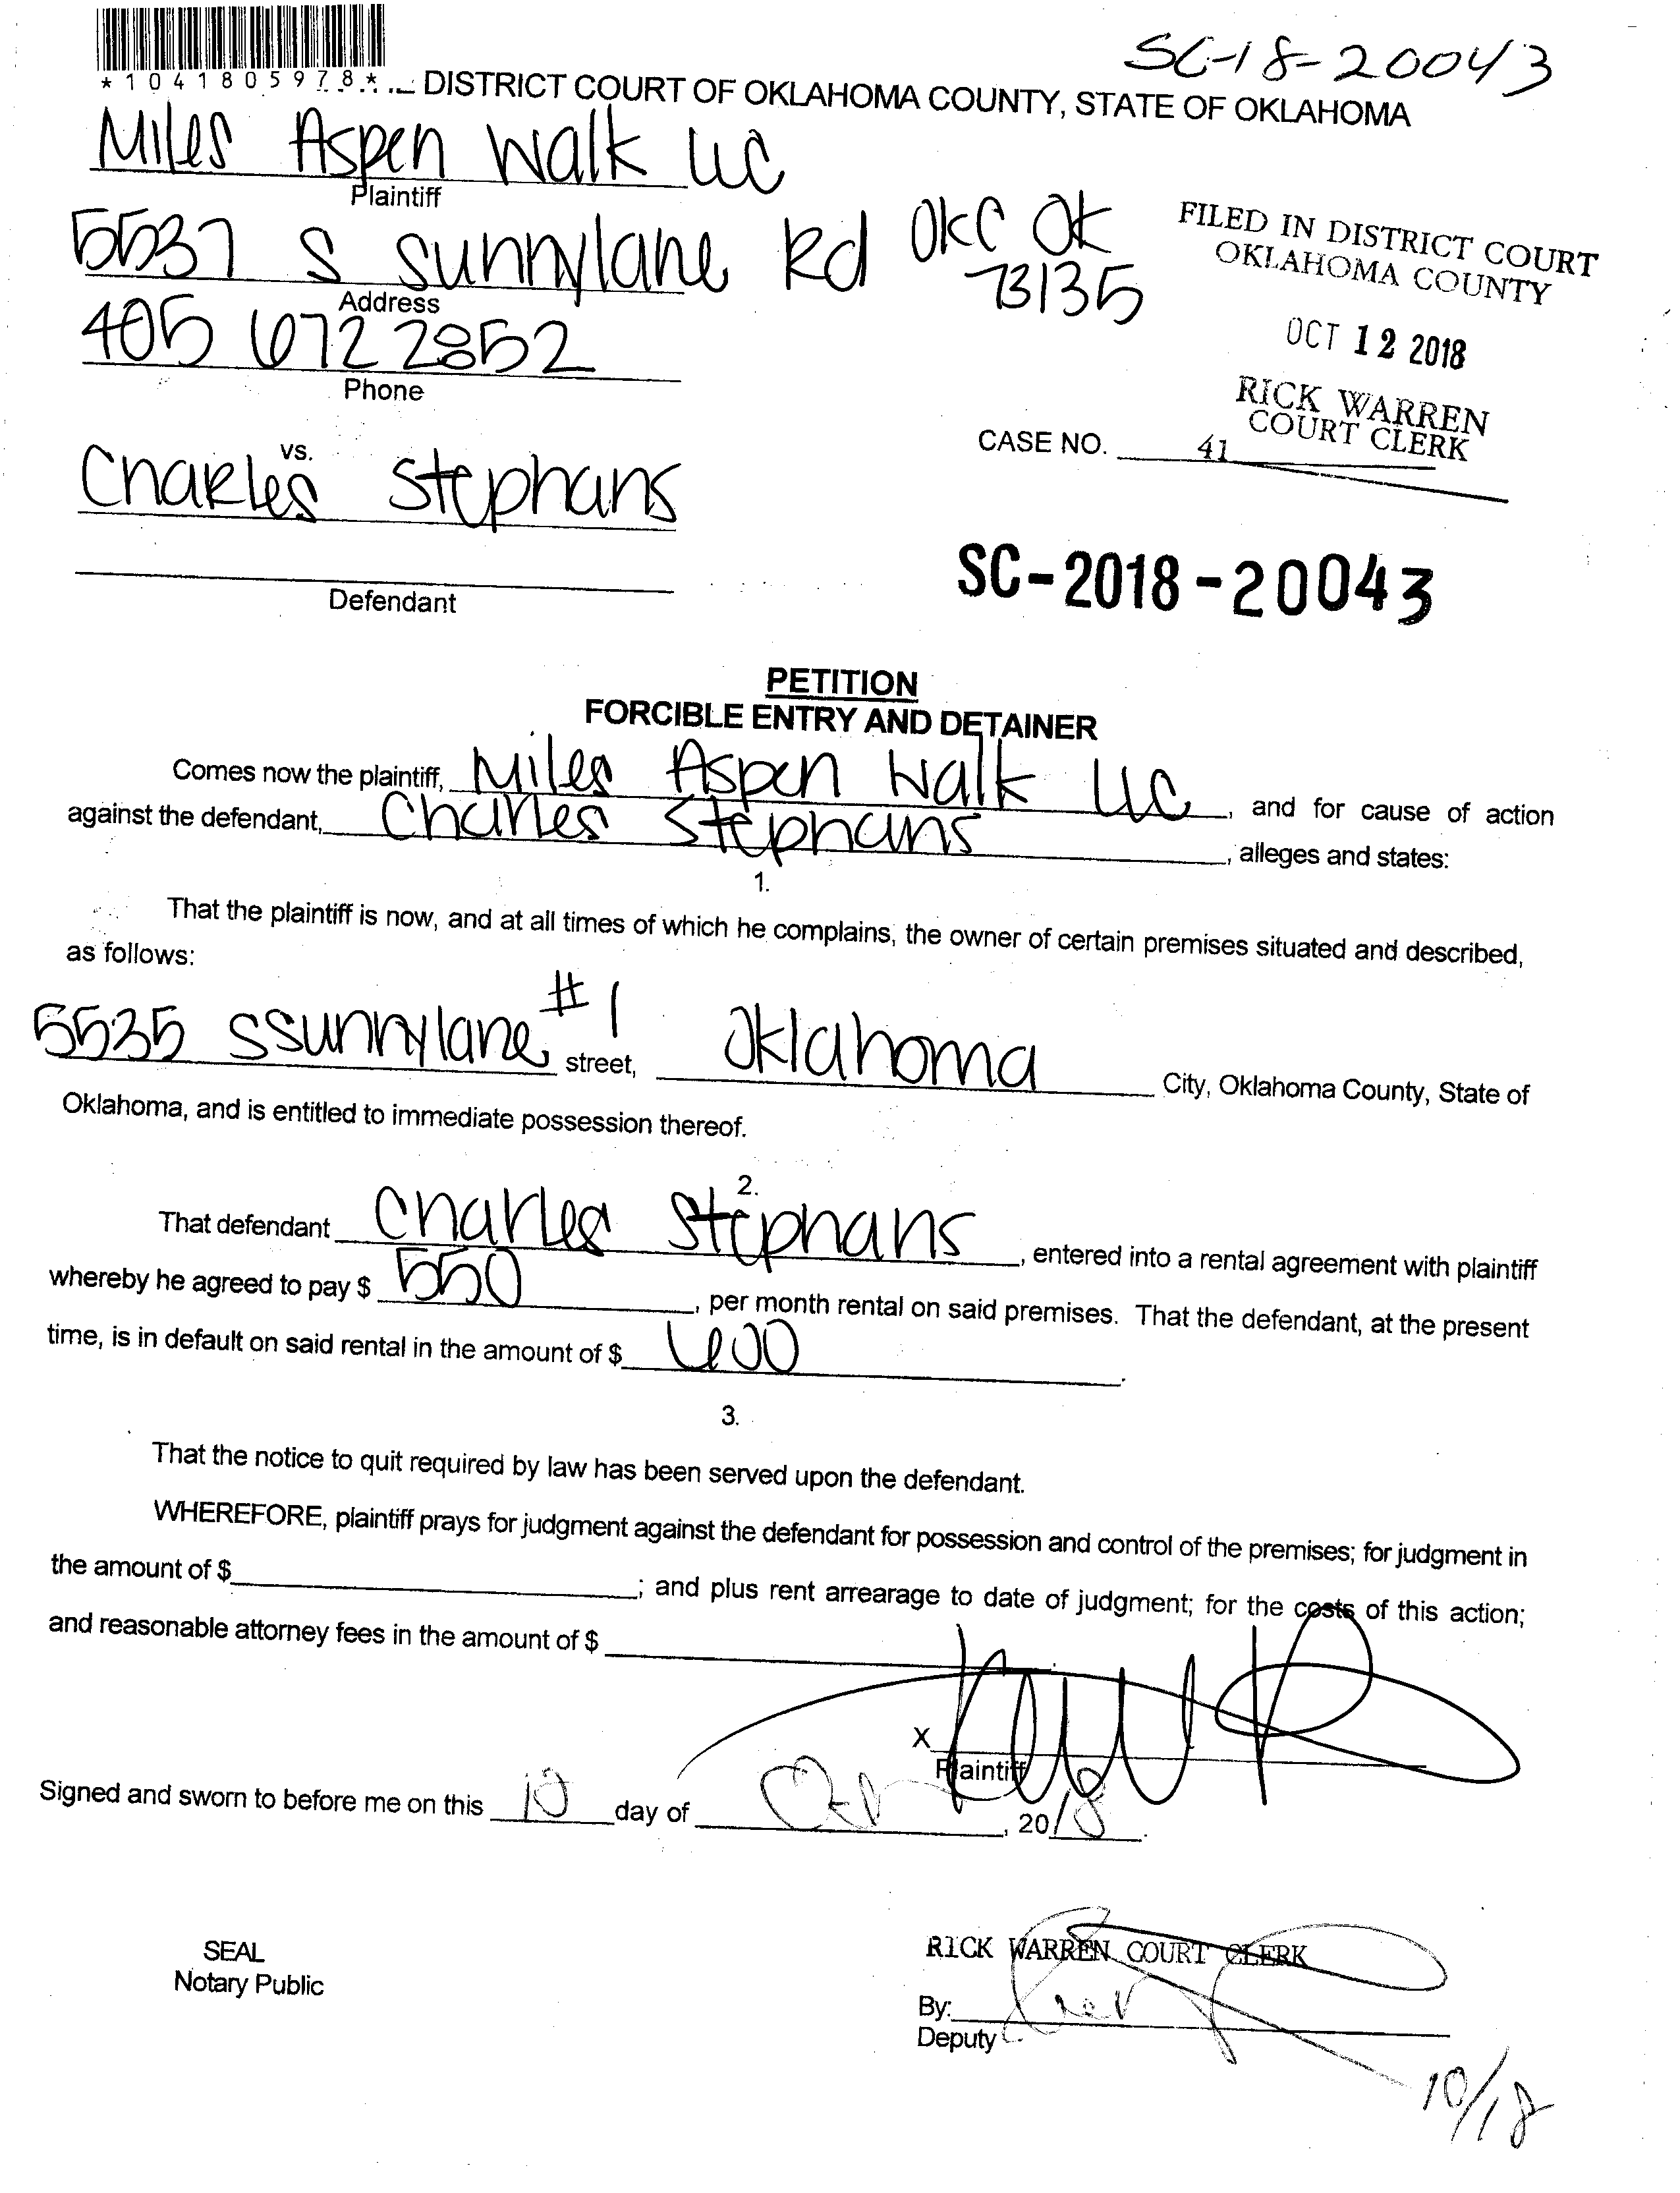 SC-18-20043
*1041805978* DISTRICT COURT OF OKLAHOMA COUNTY, STATE OF OKLAHOMA
Miles Aspen Walk LLC
Plaintiff
5537 S Sunnylane Rd OKC OK
73135
Address
405 672 2852
Phone
FILED IN DISTRICT COURT
OKLAHOMA COUNTY
OCT 12 2018
RICK WARREN
COURT CLERK
CASE NO. 41
vs.
Charles Stephans
Defendant
SC-2018-20043
PETITION
FORCIBLE ENTRY AND DETAINER
Comes now the plaintiff, Miles Aspen Walk LLC, and for cause of action
against the defendant, Charles Stephans, alleges and states:
1.
That the plaintiff is now, and at all times of which he complains, the owner of certain premises situated and described,
as follows:
5535 S Sunnylane #1 street, Oklahoma City, Oklahoma County, State of
Oklahoma, and is entitled to immediate possession thereof.
2.
That defendant Charles Stephans, entered into a rental agreement with plaintiff
whereby he agreed to pay $ 550, per month rental on said premises. That the defendant, at the present
time, is in default on said rental in the amount of $ 600.
3.
That the notice to quit required by law has been served upon the defendant.
WHEREFORE, plaintiff prays for judgment against the defendant for possession and control of the premises; for judgment in
the amount of $ ; and plus rent arrearage to date of judgment; for the costs of this action;
and reasonable attorney fees in the amount of $
X
Plaintiff
Signed and sworn to before me on this day of , 2018.
SEAL
Notary Public
RICK WARREN COURT CLERK
By:
Deputy
10/18